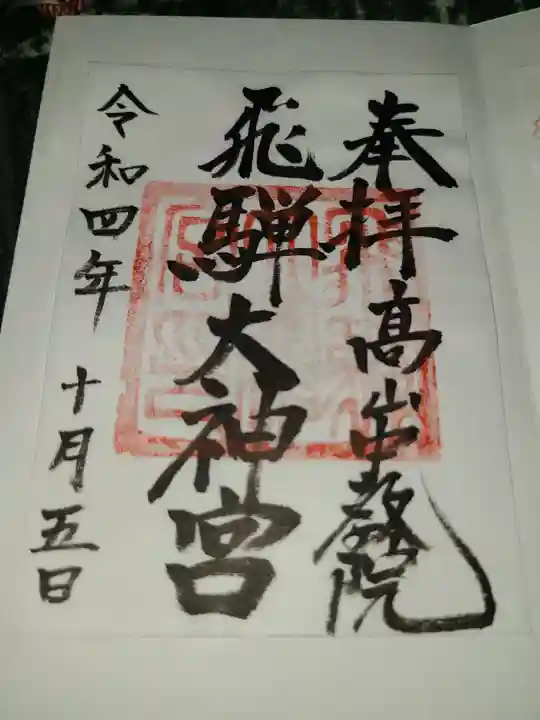 奉拝 高山中教院
飛騨大神宮
令和四年 十月 五日